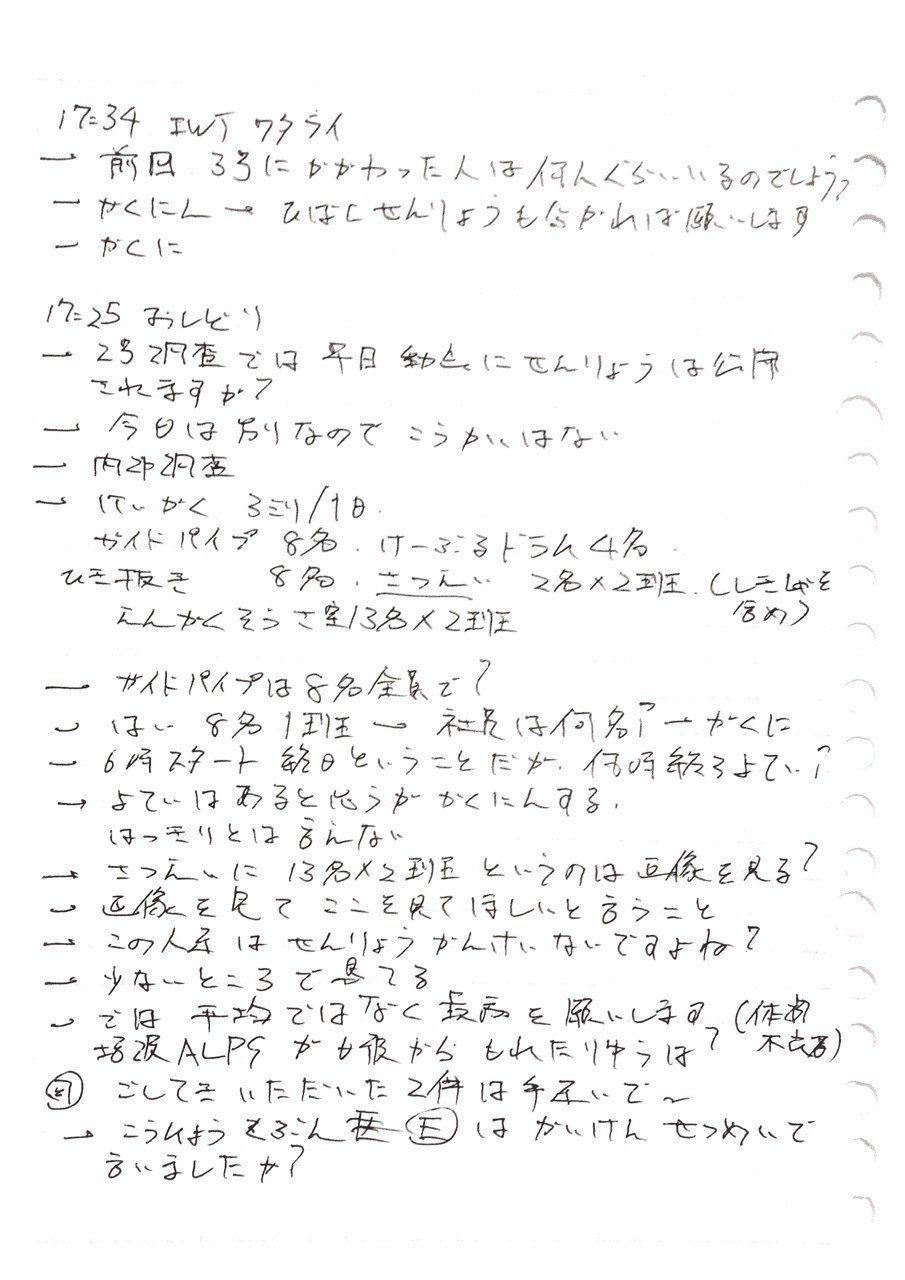 17:34 IWJ ワタライ
→ 前回 3号にかかわった人は何人ぐらいいるのでしょう?
→ かくにん → ひばくせんりょうも分かれば願いします
→ かくに
17:25 おしどり
→ 2号調査では 早日 にせんりょうは公開
されますか?
→ 今日は別なので こうかいはない
→ 内部調査
→ けいかく 3ミリ/1日.
ガイドパイプ 8名. けーぶるドラム 4名.
ひき抜き 8名. さつえい 2名×2班. (しきしゃを
含め)
えんかくそうさ室13名×2班
→ ガイドパイプは8名全員で?
→ はい 8名1班 → 社員は何名? → かくに
→ 6時スタート 終日ということだが. 何時終るよてい?
→ よていはあると思うが かくにんする.
はっきりとは言えない
→ さつえいに 13名×2班 というのは画像を見る?
→ 画像を見て ここを見てほしいと言うこと
→ この人達は せんりょうかんけいないですよね?
→ 少ないところで見てる
→ では 平均ではなく最高を願いします (体調
不良者)
ALPS が から もれたりゆうは?
ごしてきいただいた2件は手違いで~
→ こうひょう E は かいけん せつめいで
言いましたか?